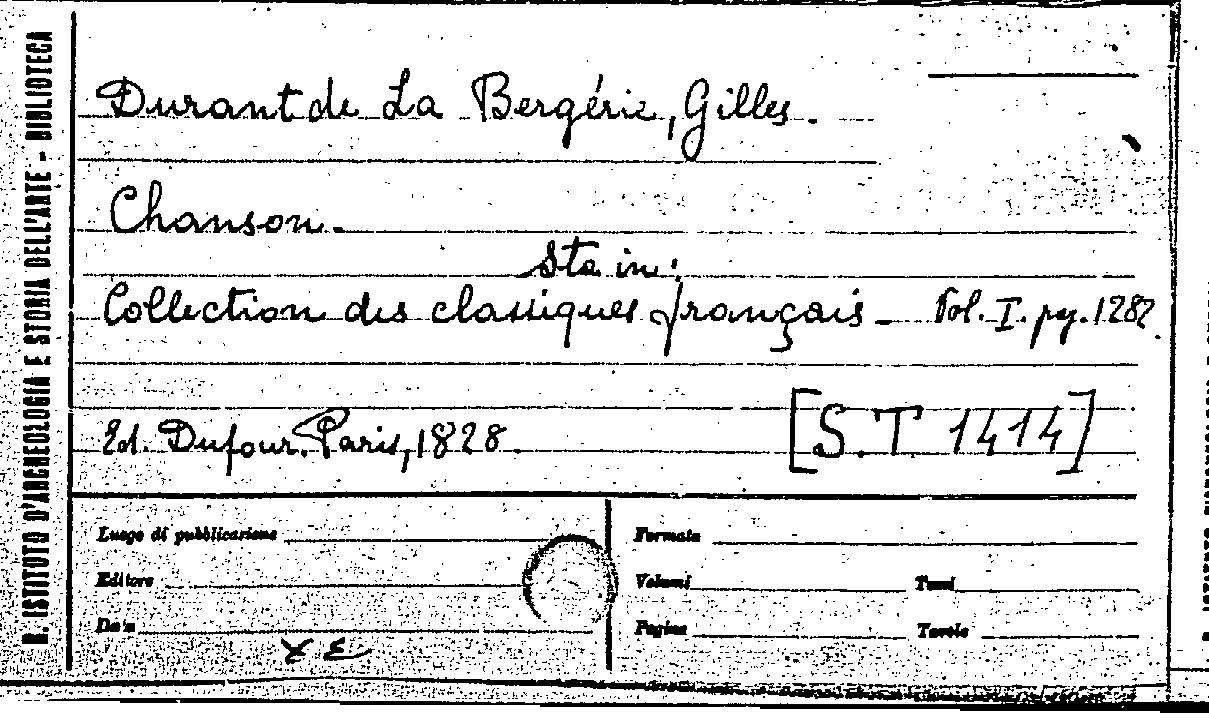 R. ISTITUTO D'ARCHEOLOGIA E STORIA DELL'ARTE - BIBLIOTECA
Durant de La Bergérie, Gilles.
Chanson.
Sta in:
Collection des classiques français - Vol. I. pg. 1282
Ed. Dufour. Paris, 1828.
[S.T 1414]
Luogo di pubblicazione
Formato
Editore
Volumi
Tomi
Data
Pagine
Tavole